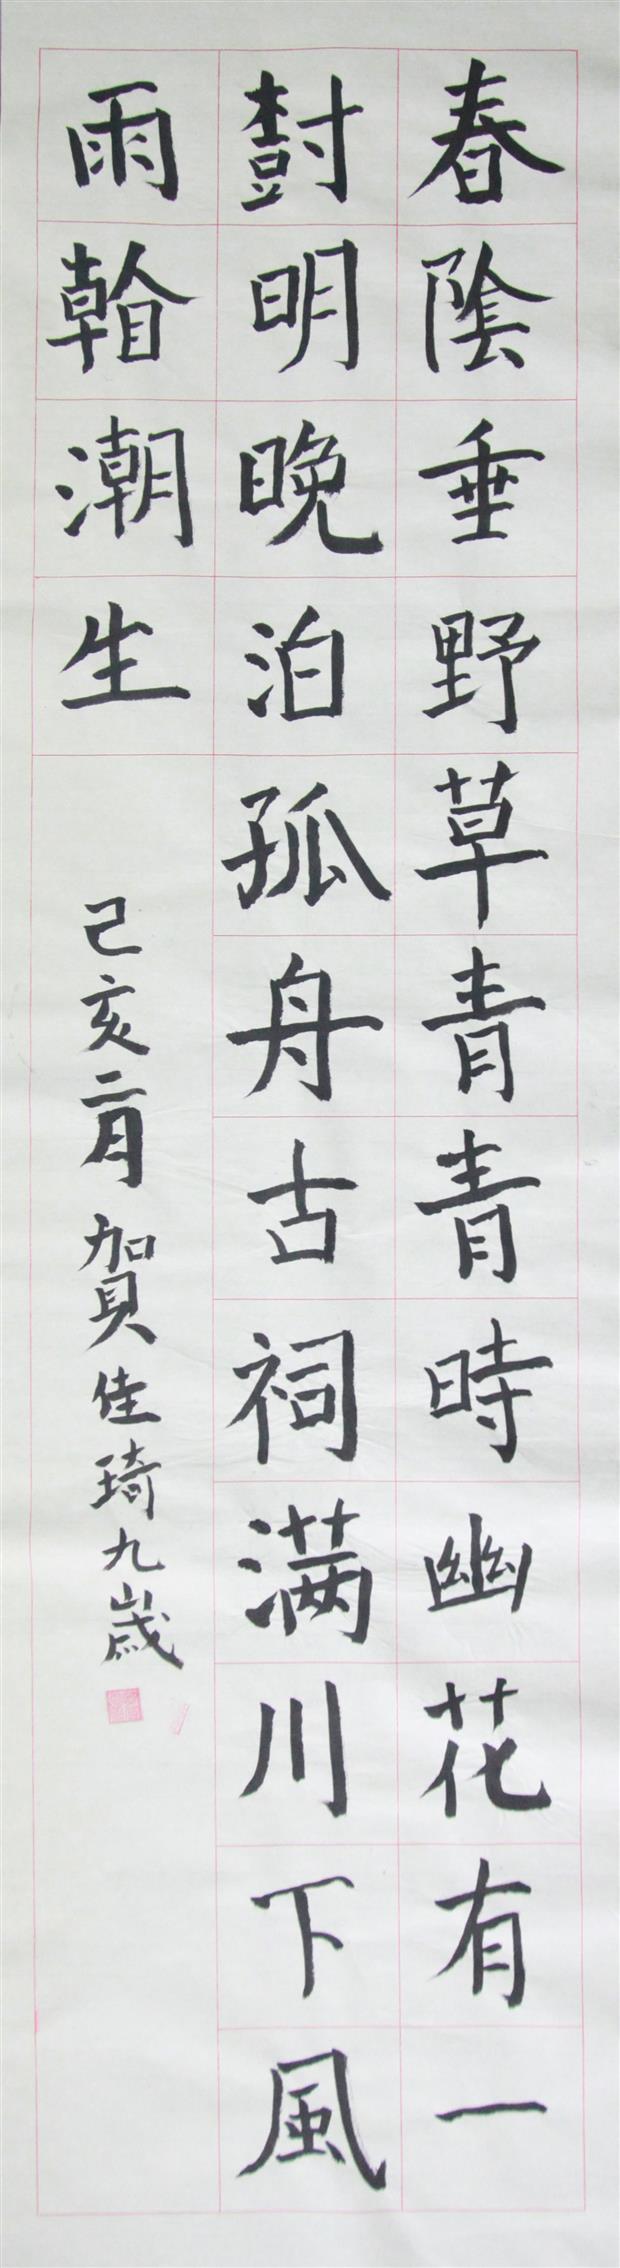 春陰垂野草青青時幽花有一
樹明晚泊孤舟古祠滿川下風
雨看潮生
己亥二月賀佳琦九歲